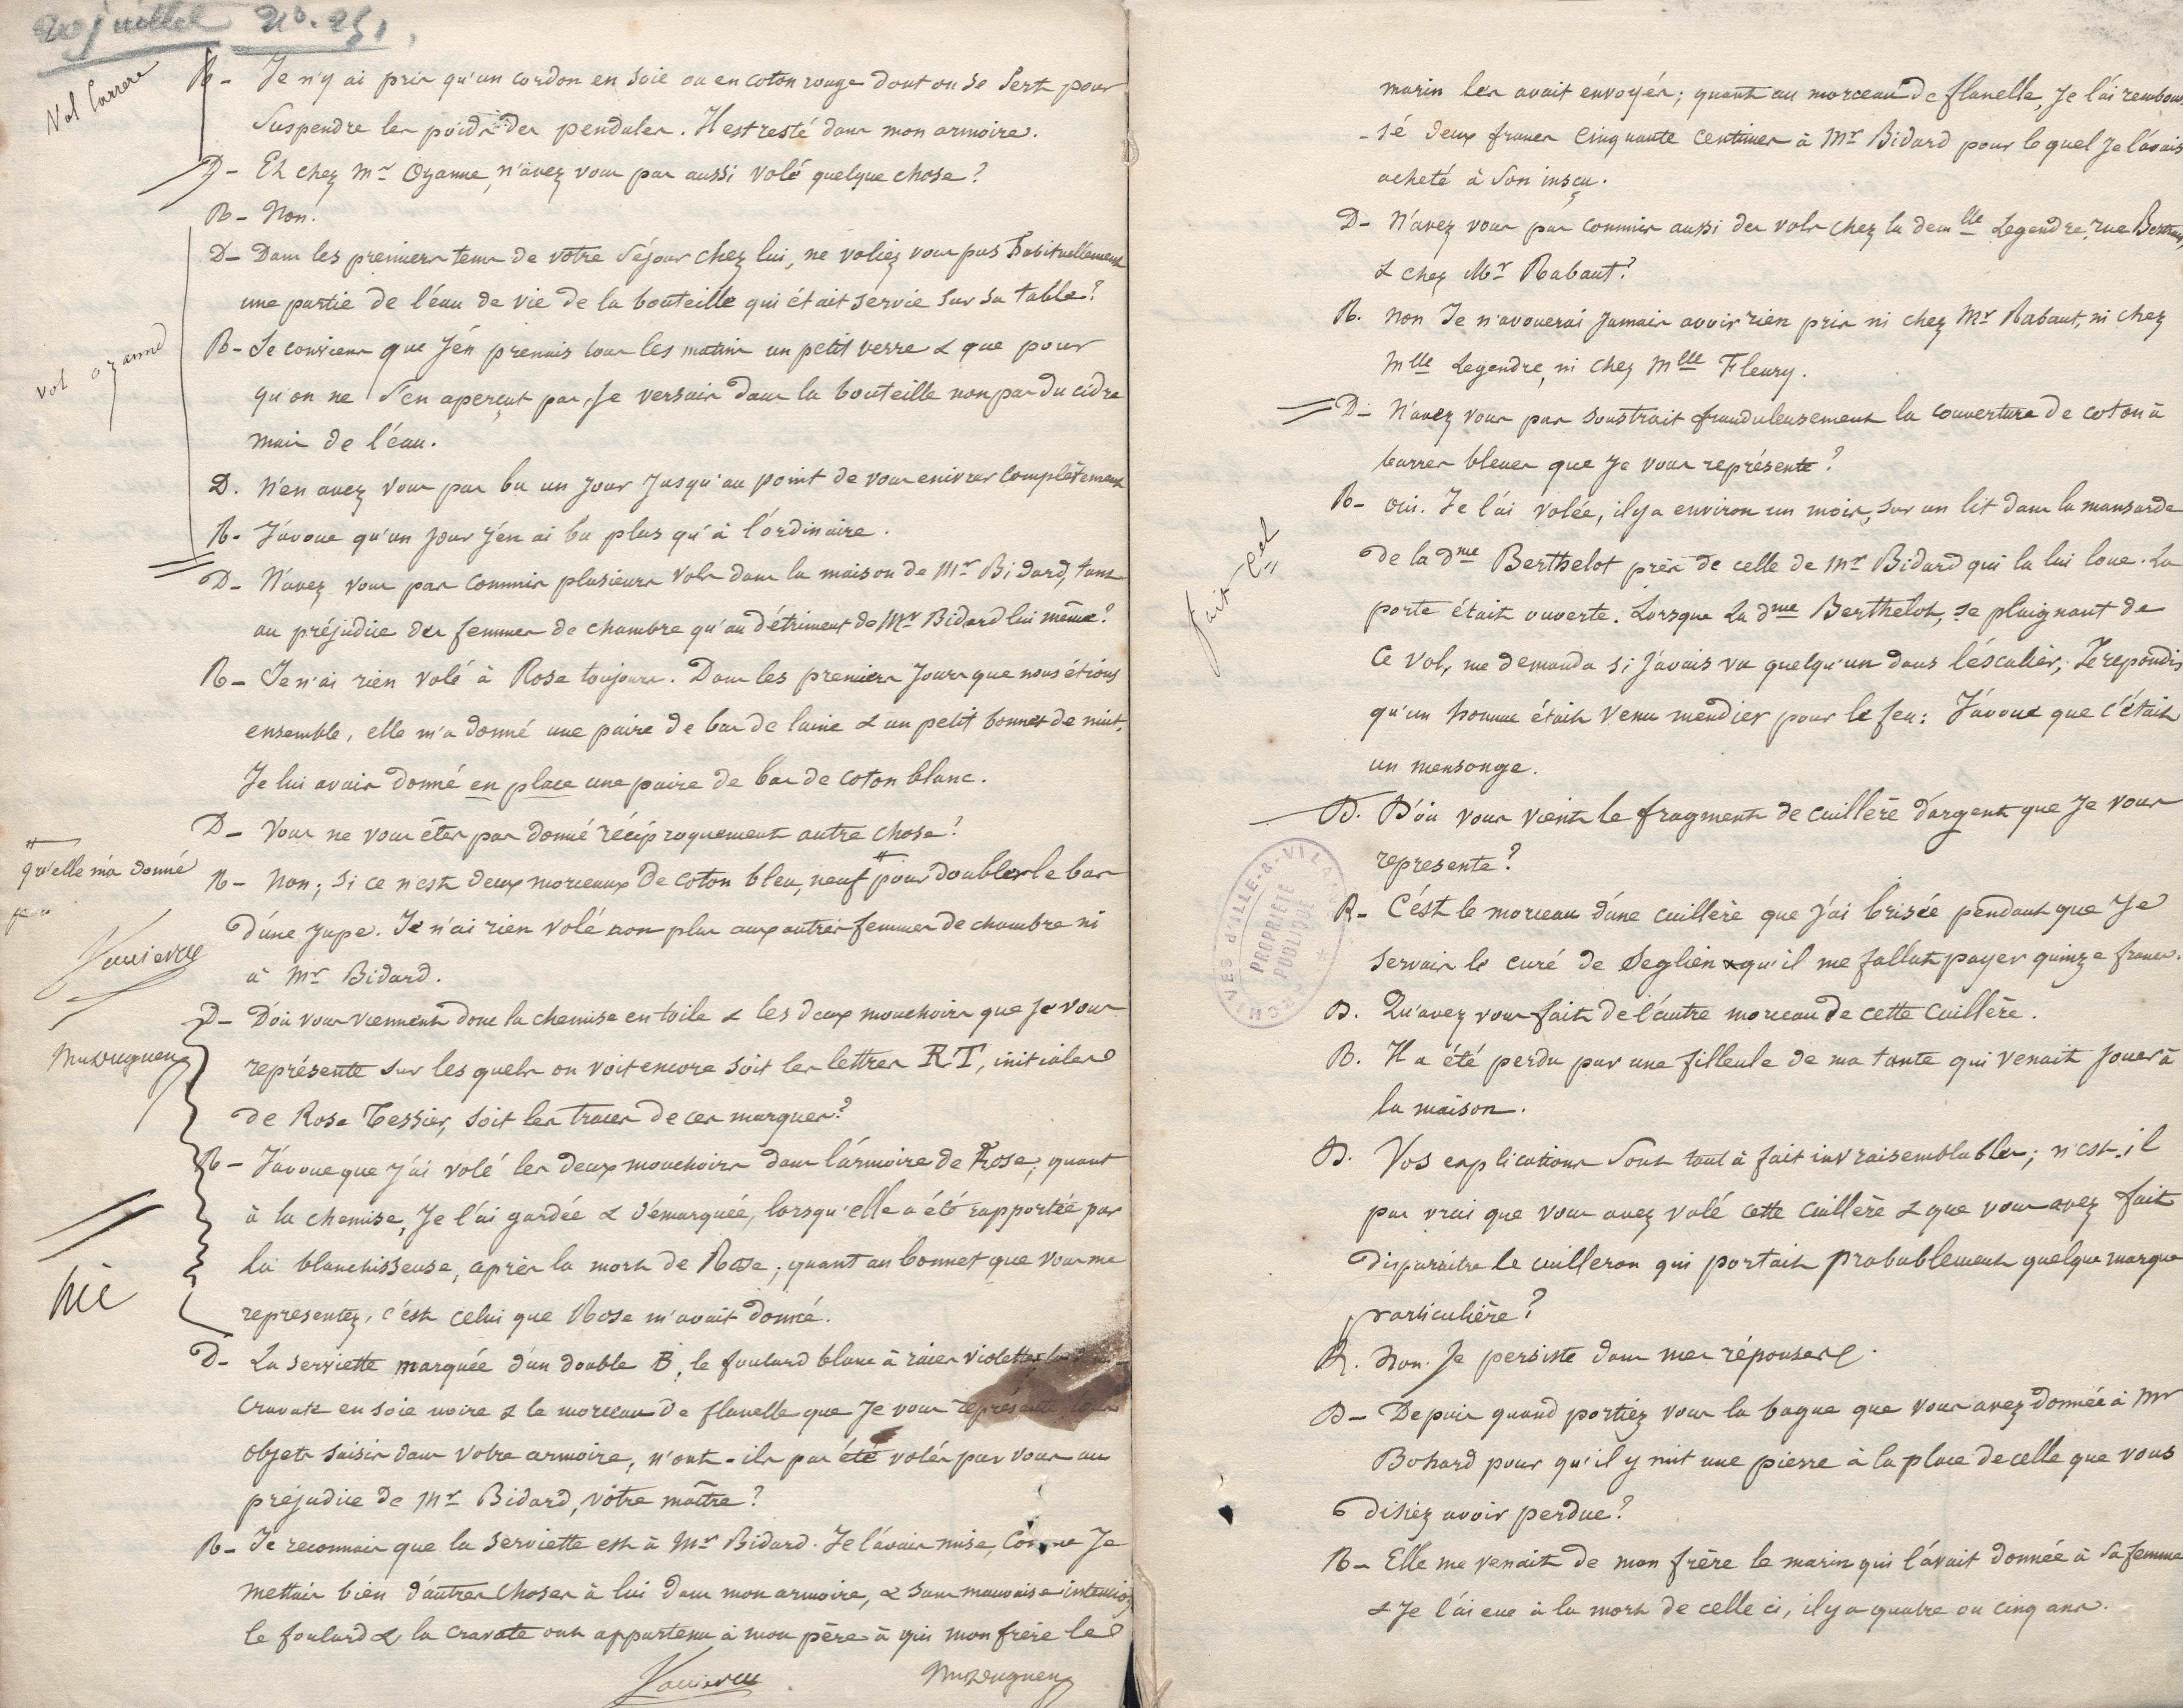 20 juillet N°. 251.
Vol Carrere
R - Je n'y ai pris qu'un cordon en soie ou en coton rouge dont on se sert pour
suspendre les poids des pendules. Il est resté dans mon armoire.
D - Et chez Mr Ozanne, n'avez vous pas aussi volé quelque chose?
R - Non.
vol ozanne
D - Dans les premiers tems de votre séjour chez lui, ne voliez vous pas habituellement
une partie de l'eau de vie de la bouteille qui était servie sur sa table?
R - Je conviens que j'en prenais tous les matins un petit verre & que pour
qu'on ne s'en aperçut pas, Je versais dans la bouteille non pas du cidre
mais de l'eau.
D. N'en avez vous pas bu un jour jusqu'au point de vous enivrer complètement
R. J'avoue qu'un jour j'en ai bu plus qu'à l'ordinaire.
D - N'avez vous pas commis plusieurs vols dans la maison de Mr Bidard, tant
au préjudice des femmes de chambre qu'au détriment de Mr Bidard lui même?
R - Je n'ai rien volé à Rose toujours. Dans les premiers jours que nous étions
ensemble, elle m'a donné une paire de bas de laine & un petit bonnet de nuit.
Je lui avais donné en place une paire de bas de coton blanc.
D - Vous ne vous êtes pas donné réciproquement autre chose?
qu'elle m'a donné
R - Non; si ce n'est deux morceaux de coton bleu, neuf # pour doubler le bas
d'une jupe. Je n'ai rien volé non plus aux autres femmes de chambre ni
à Mr Bidard.
D - D'où vous viennent donc la chemise en toile & les deux mouchoirs que je vous
représente sur lesquels on voit encore soit les lettres RT, initiales
de Rose Tessier, soit les traces de ces marques?
R - J'avoue que j'ai volé les deux mouchoirs dans l'armoire de Rose; quant
à la chemise, Je l'ai gardée & démarquée, lorsqu'elle a été rapportée par
la blanchisseuse, après la mort de Rose; quant au bonnet que vous me
representez, c'est celui que Rose m'avait donné.
nié
D - La serviette marquée d'un double B, le foulard blanc à raies violettes, la
cravate en soie noire & le morceau de flanelle que Je vous représente, tous
objets saisis dans votre armoire, n'ont-ils pas été volés par vous au
préjudice de Mr Bidard, votre maître?
R - Je reconnais que la serviette est à Mr Bidard. Je l'avais mise, comme Je
mettais bien d'autres choses à lui dans mon armoire, & sans mauvaise intention,
le foulard & la cravate ont appartenu à mon père à qui mon frère le
marin les avait envoyés; quant au morceau de flanelle, Je l'ai rembour
-sé deux francs cinquante centimes à Mr Bidard pour lequel Je l'avais
acheté à son insçu.
D - N'avez vous pas commis aussi des vols chez la demlle Legendre, rue
& chez Mr Rabaut?
R. Non Je n'avouerai jamais avoir rien pris ni chez Mr Rabaut, ni chez
Mlle Legendre, ni chez Mlle Fleury.
D - N'avez vous pas soustrait frauduleusement la couverture de coton à
barres bleues que Je vous représente?
R - Oui. Je l'ai volée, il y a environ un mois, sur un lit dans la mansarde
de la dme Berthelot près de celle de Mr Bidard qui la lui loue. La
porte était ouverte. Lorsque la dme Berthelot, se plaignant de
ce vol, me demanda si j'avais vu quelqu'un dans l'escalier, Je répondis
qu'un homme était venu mendier pour le feu: J'avoue que c'était
un mensonge.
D. D'où vous vient le fragment de cuillère d'argent que Je vous
représente?
R - C'est le morceau d'une cuillère que j'ai brisée pendant que Je
servais le curé de Seglien & qu'il me fallut payer quinze francs.
D. Qu'avez vous fait de l'autre morceau de cette cuillère.
R. Il a été perdu par une filleule de ma tante qui venait jouer à
la maison.
D. Vos explications sont tout à fait invraisemblables; n'est-il
pas vrai que vous avez volé cette cuillère & que vous avez fait
disparaitre le cuilleron qui portait probablement quelque marque
particulière?
R. Non. Je persiste dans mes réponses.
D - Depuis quand portiez vous la bague que vous avez donnée à Mr
Bohard pour qu'il y mit une pierre à la place de celle que vous
disiez avoir perdue?
R - Elle me venait de mon frère le marin qui l'avait donnée à sa femme
& Je l'ai eue à la mort de celle ci, il y a quatre ou cinq ans.
ARCHIVES d'ILLE-&-VILAINE
PROPRIÉTÉ PUBLIQUE